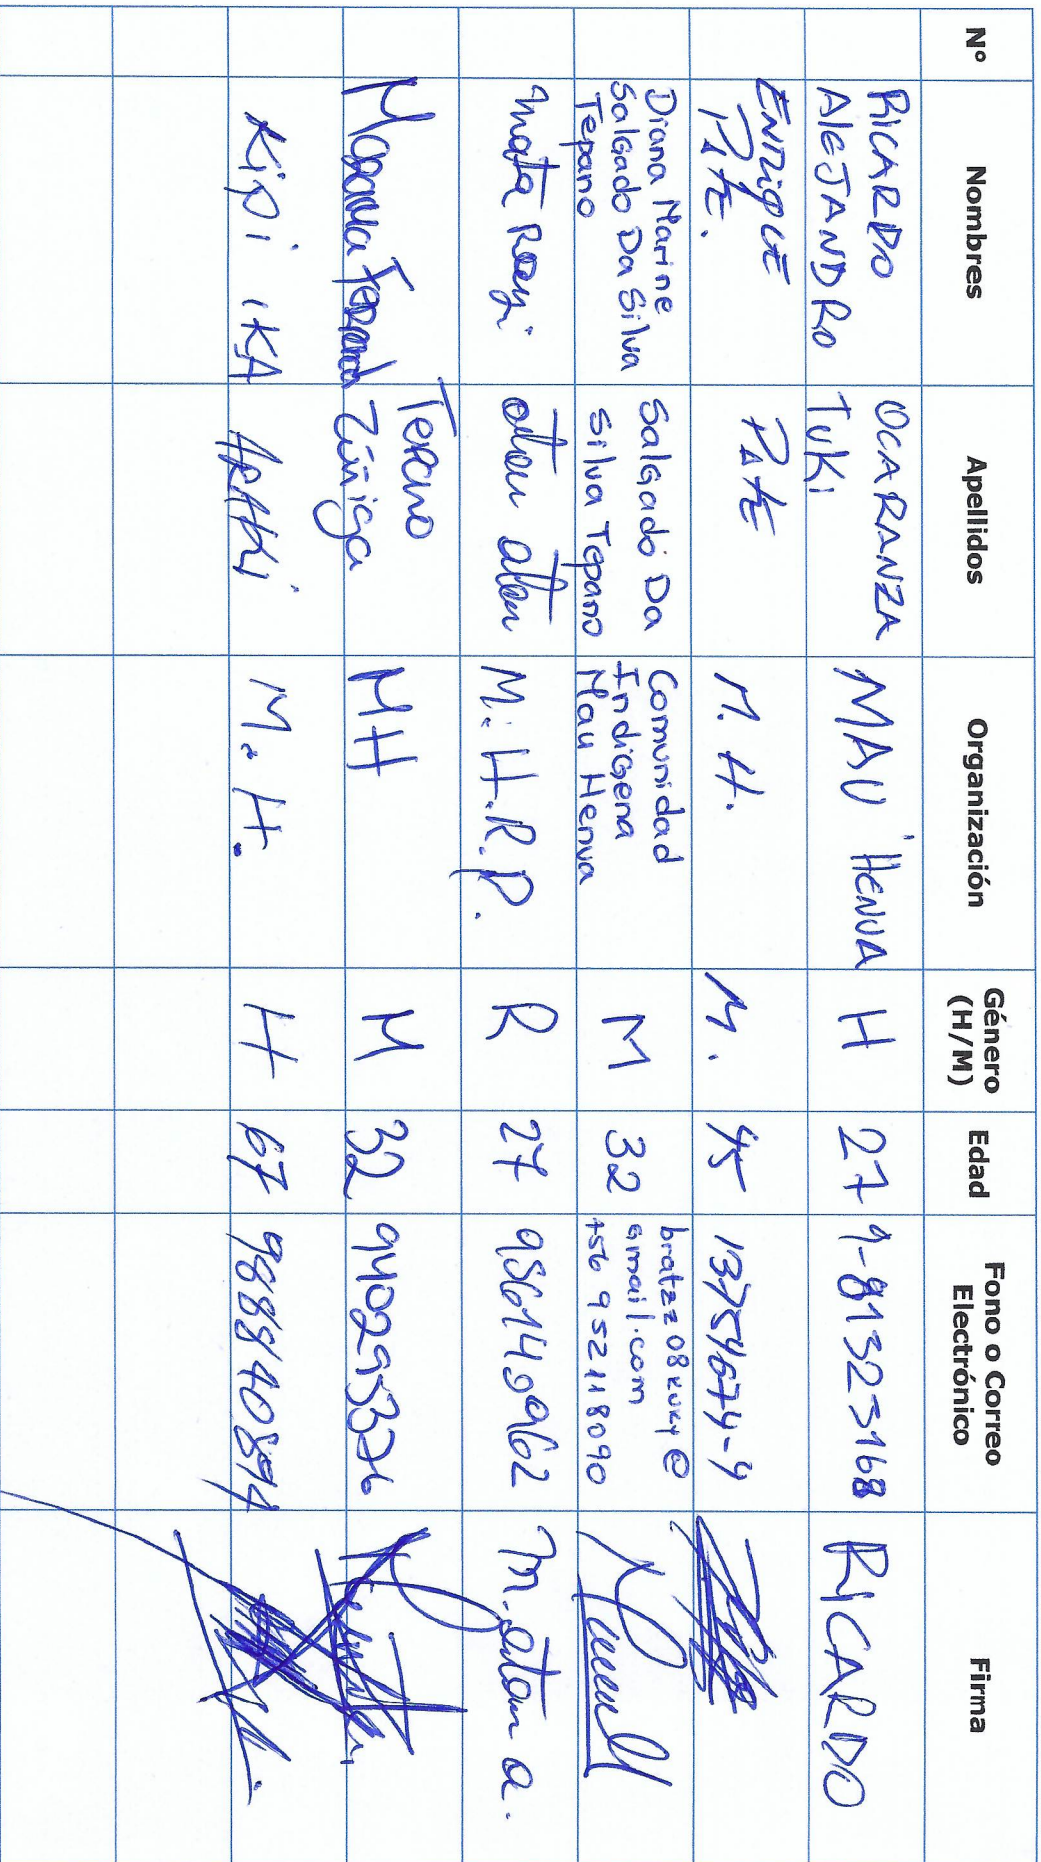 Nº Nombres Apellidos Organización Género (H/M) Edad Fono o Correo Electrónico Firma
RICARDO ALEJANDRO OCARANZA TUKI MAU HENUA H 27 9-81323168 RICARDO
ENRIQUE PATE. PATE M. H. M. 45 13754674-4
Diana Marine Salgado Da Silva Tepano Salgado Da Silva Tepano Comunidad Indigena Mau Henua M 32 bratzz08kuky@gmail.com +56 952118090
mata Reegi atan atan M.H.R.P. R 27 986149962 m. atan a.
Tepano Zúñiga MH M 32 940295376
Kipi IKA ARAKI M. H. H 67 988840894